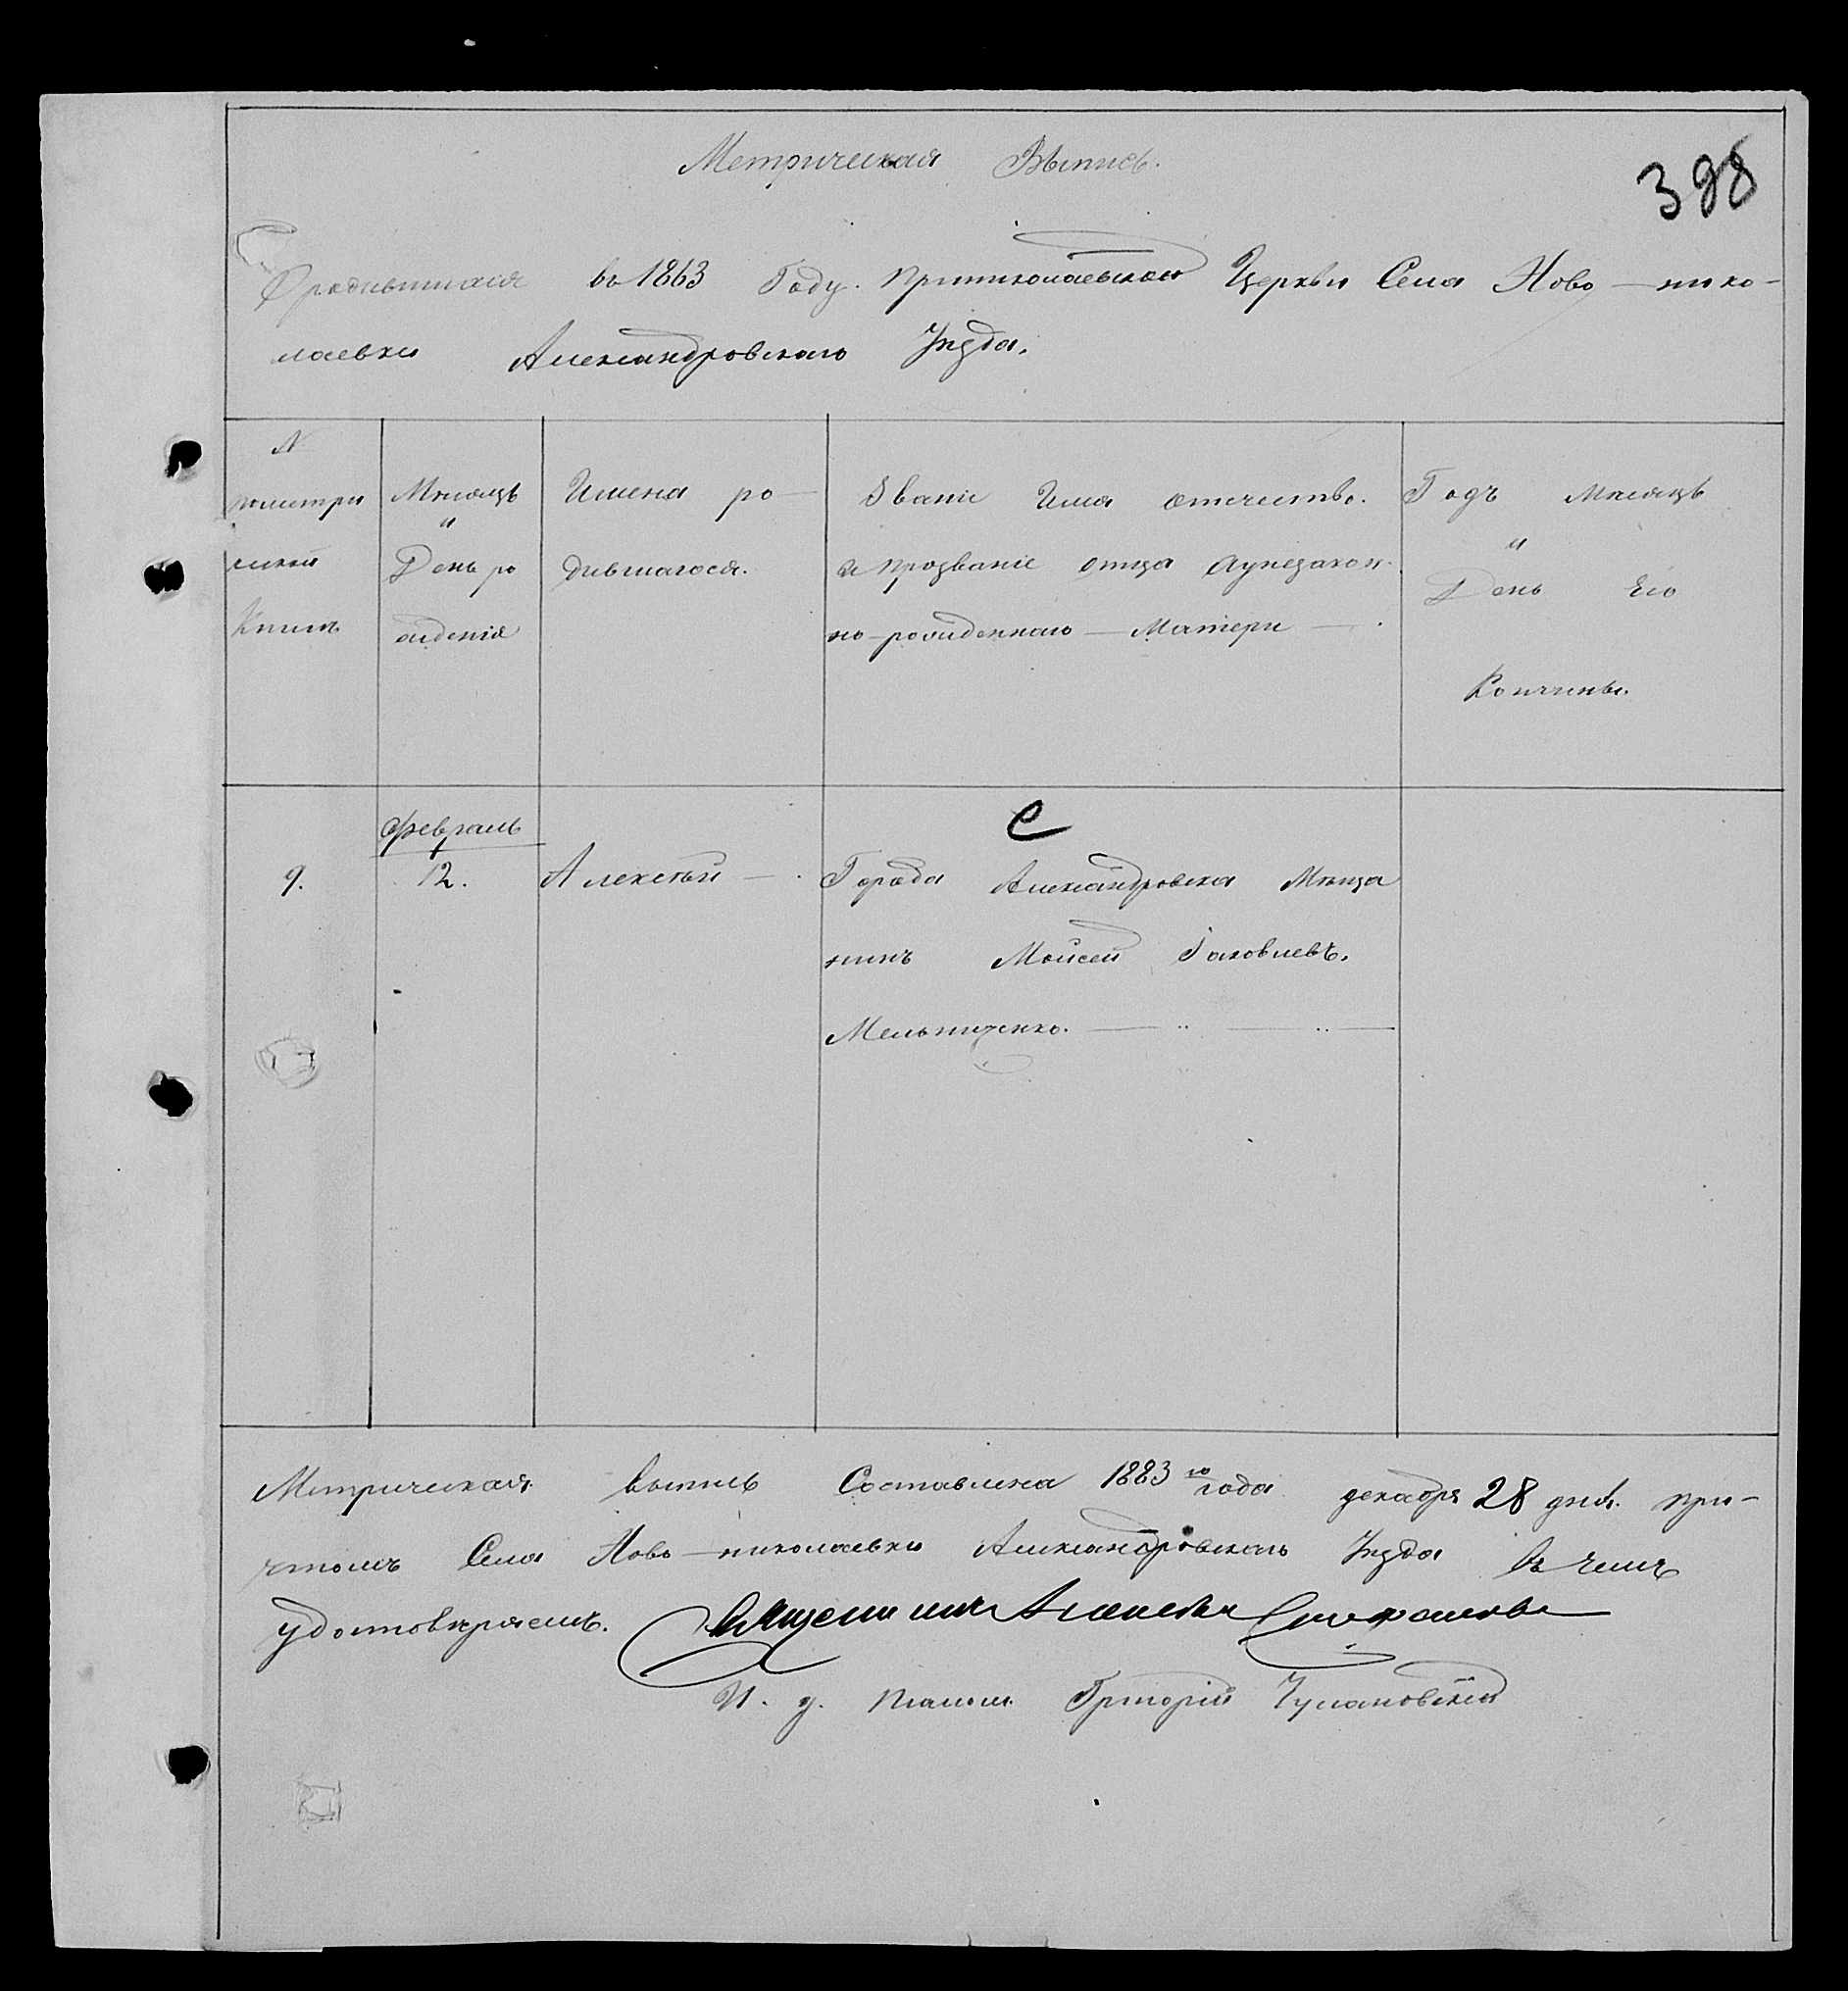 Метрическая Выпись.
398
Ородившихся въ 1863 Году. при николаевской Церкви Села Ново-нико-
лаевки Александровскаго Уѣзда.
N
пометри
ческой
Книгѣ
Мѣсяцъ
и
День ро
жденія
Имена ро-
дившагося.
Званіе Имя отечество.
и прозваніе отца аунезакон-
но-рожденнаго — Матери —
Годъ Мѣсяцъ
и
День Его
Кончины.
Февраль
9. 12. Алексѣй —
С
Города Александровска Мѣща
нинъ Моисей Іаковлевъ.
Мельниченко.
Метрическая выпись Составлена 1883 го года декабря 28 дня. при-
чтомъ Села Ново-николаевки Александровскаго Уѣзда въ чемъ
удостовѣряемъ. Священникъ Алексѣй
И. д. псалом. Григорій